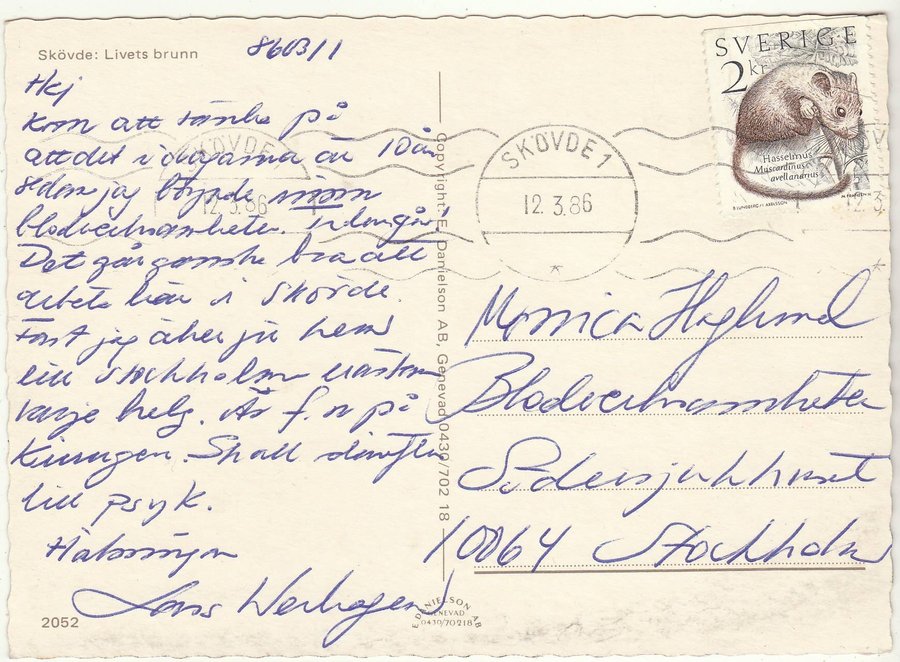 Skövde: Livets brunn
860311
Hej
Kom att tänka på
att det i dagarna är 10 år
sden jag började inom
blodverksamheten. Tiden går!
Det går ganska bra att
arbeta här i Skövde.
Fast jag åker ju hem
till Stockholm nästan
varje helg. Är f.n på
Kirurgen. Skall därefter
till psyk.
Hälsningar
Lars
2052
Copyright: E. Danielson AB, Genevad 0430/702 18
E. DANIELSON AB
GENEVAD
0430/70218
SVERIGE
2 kr
Hasselmus
Muscardinus
avellanarius
SKÖVDE 1
12.3.86
SKÖVDE
12.3.86
12.3
Monica Haglund
Blodverksamheten
Södersjukhuset
10064 Stockholm